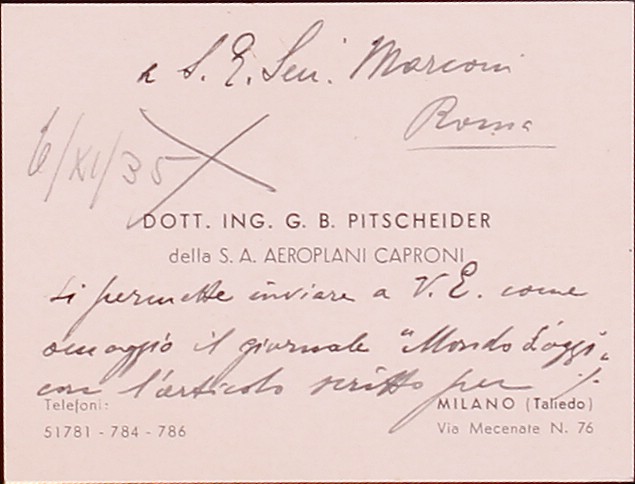 a S. E. Sen. Marconi
Roma
6/XI/35
DOTT. ING. G. B. PITSCHEIDER
della S. A. AEROPLANI CAPRONI
si permette inviare a V. E. come
omaggio il giornale "Mondo d'oggi"
con l'articolo scritto per ./.
Telefoni:
51781 - 784 - 786
MILANO (Taliedo)
Via Mecenate N. 76